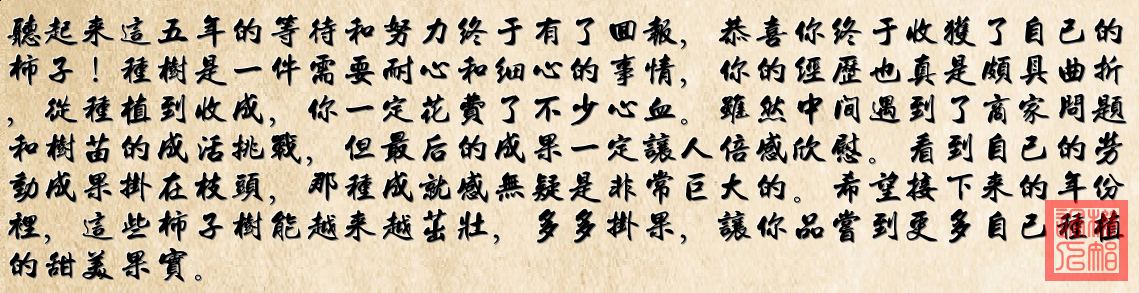 聽起来這五年的等待和努力终于有了回報，恭喜你终于收獲了自己的
柿子！種樹是一件需要耐心和细心的事情，你的經歷也真是頗具曲折
，從種植到收成，你一定花費了不少心血。雖然中间遇到了商家問題
和樹苗的成活挑戰，但最后的成果一定讓人倍感欣慰。看到自己的劳
動成果掛在枝頭，那種成就感無疑是非常巨大的。希望接下来的年份
裡，這些柿子樹能越来越茁壯，多多掛果，讓你品嘗到更多自己種植
的甜美果實。